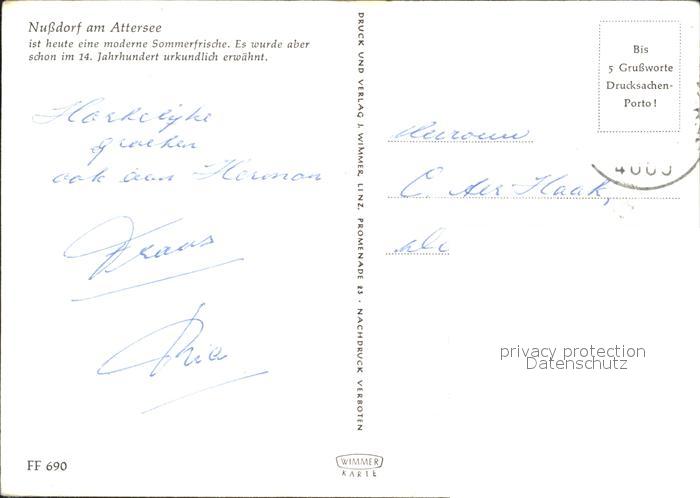 Nußdorf am Attersee
ist heute eine moderne Sommerfrische. Es wurde aber
schon im 14. Jahrhundert urkundlich erwähnt.
Hartelijke
groeten
ook aan Herman
Frans
Ria
FF 690
DRUCK UND VERLAG J. WIMMER, LINZ, PROMENADE 23 · NACHDRUCK VERBOTEN
WIMMER
KARTE
Bis
5 Grußworte
Drucksachen-
Porto!
C. ter Haak,
privacy protection
Datenschutz